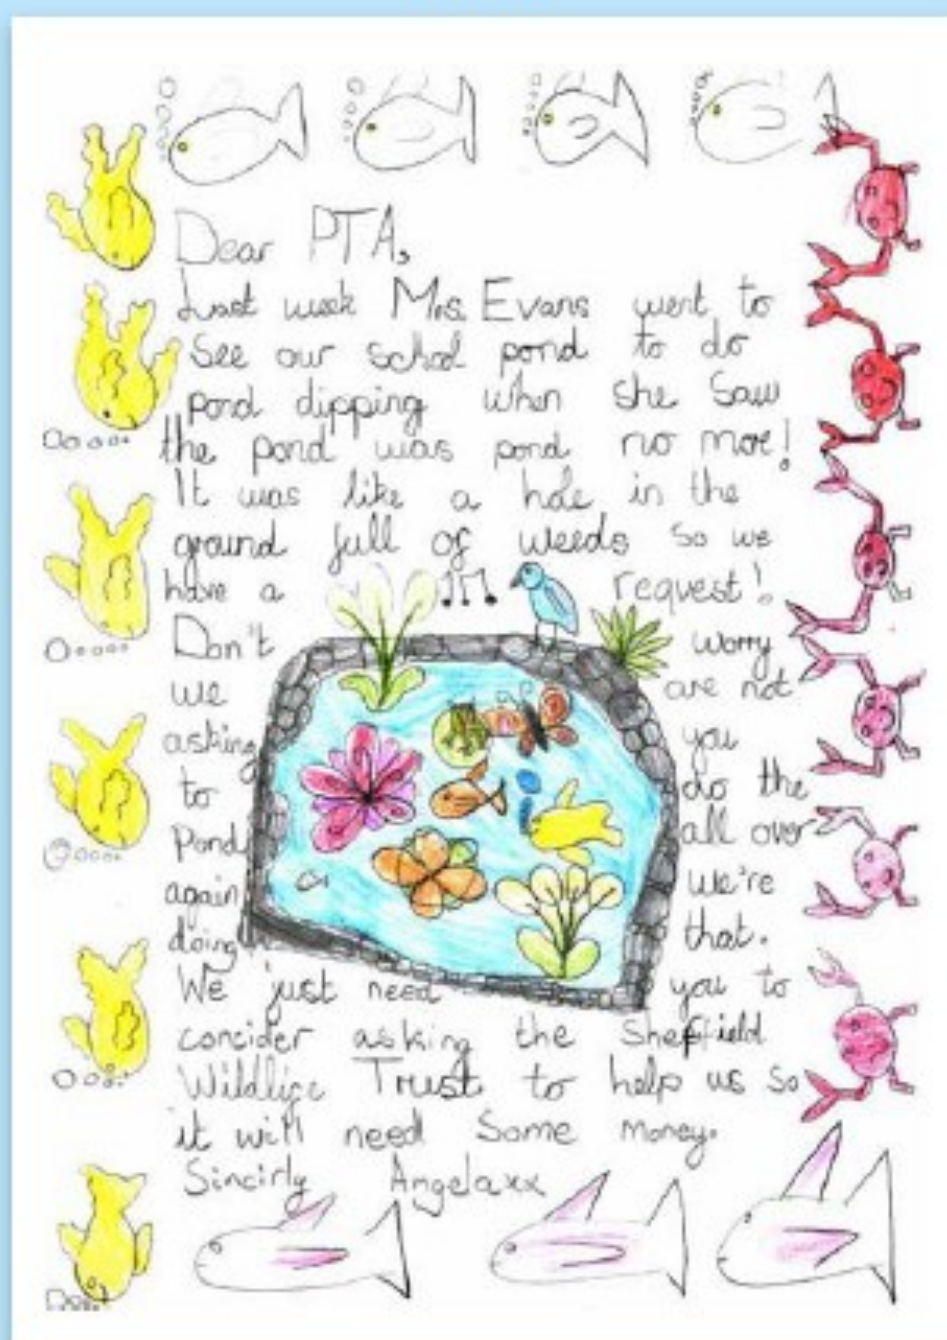 Dear PTA,
Last week Mrs. Evans went to
See our schol pond to do
pond dipping when she saw
the pond was pond no more!
It was like a hole in the
ground full of weeds so we
have a request!
Don't worry
we are not
asking you
to do the
Pond all over
again we're
doing that.
We just need you to
concider asking the Sheffield
Wildlife Trust to help us so
it will need some money.
Sincirly Angelaxx